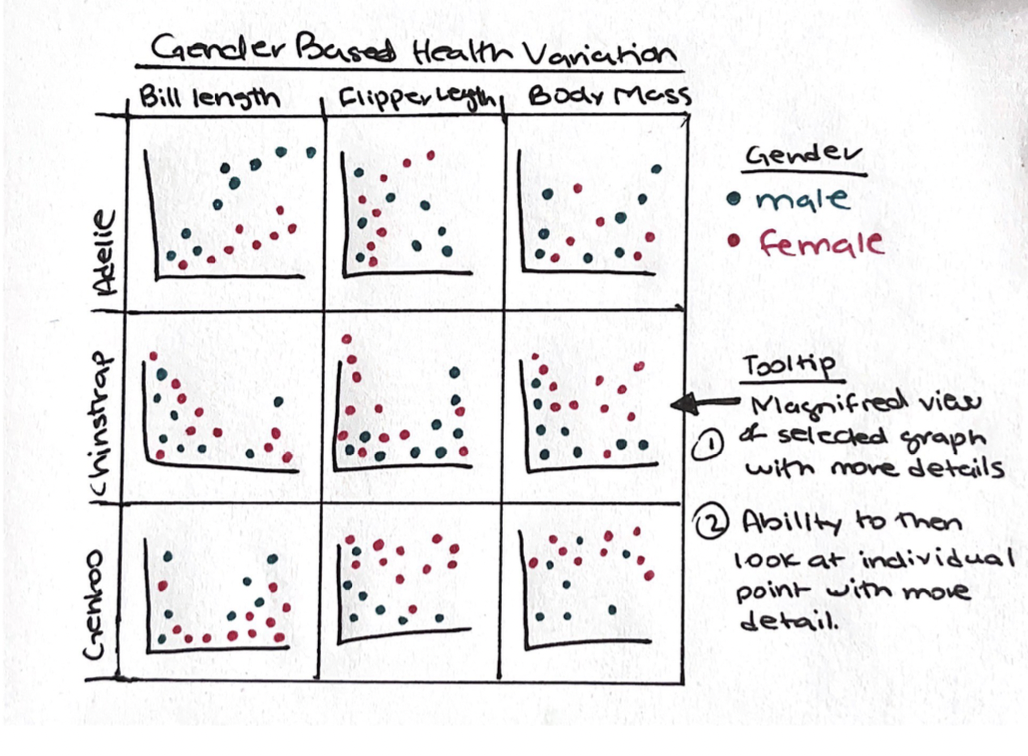 Gender Based Health Variation
Bill length
Flipper Length
Body Mass
Adelie
Chinstrap
Gentoo
Gender
male
female
Tooltip
Magnifred view
① of selected graph
with more details
② Ability to then
look at individual
point with more
detail.